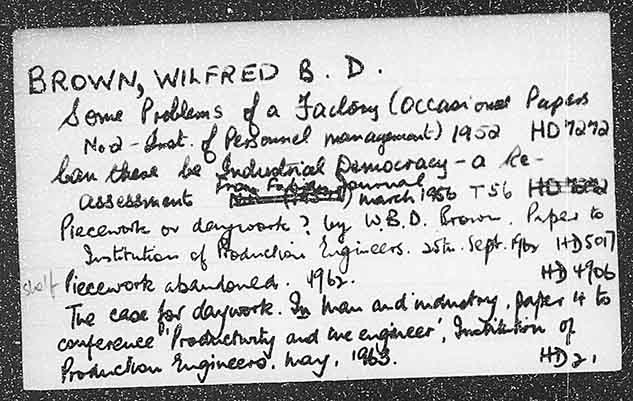 BROWN, WILFRED B. D.
Some Problems of a Factory (Occasional Papers
No 2 - Inst. of Personnel management) 1952 HD 7272
Can there be Industrial Democracy - a Re-
assessment From Fabian Journal march 1956 T56
Piecework or daywork? by W.B.D. Brown. Paper to
Institution of Production Engineers. 25th. Sept. 1962 HD5017
shelf Piecework abandoned. 1962. HD4906
The case for daywork. In Man and industry, paper 4 to
conference 'Productivity and the engineer', Institution of
Production Engineers. May, 1963. HD21